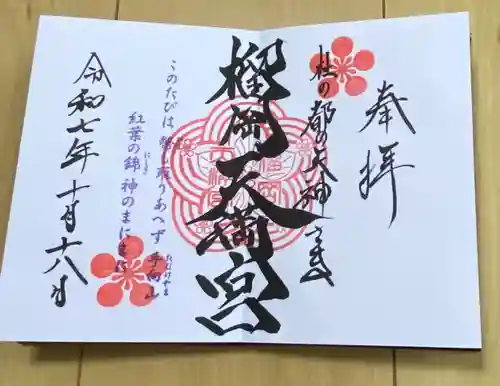 奉拝
杜の都の天神さま
榴岡天満宮
このたびは幣も取りあへず手向山
たむけやま
紅葉の錦神のまにまに
にしき
令和七年十月十八日